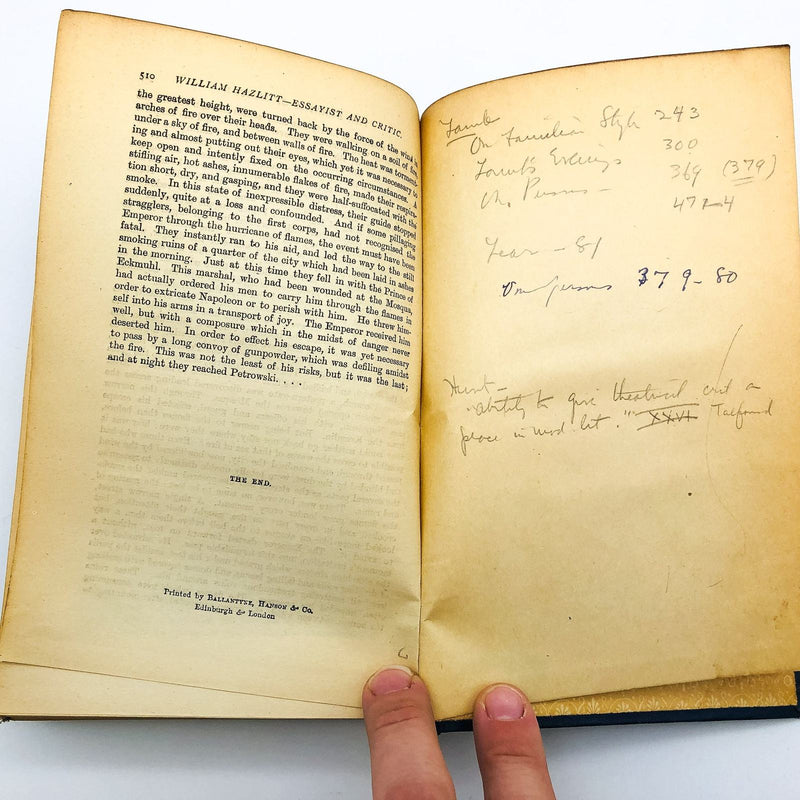 510 WILLIAM HAZLITT—ESSAYIST AND CRITIC.
the greatest height, were turned back by the force of the wind in
arches of fire over their heads. They were walking on a soil of fire,
under a sky of fire, and between walls of fire. The heat was torment-
ing and almost putting out their eyes, which yet it was necessary to
keep open and intently fixed on the occurring circumstances. A
stifling air, hot ashes, innumerable flakes of fire, made their respira-
tion short, dry, and gasping, and they were half-suffocated with the
smoke. In this state of inexpressible distress, their guide stopped
suddenly, quite at a loss and confounded. And if some pillaging
stragglers, belonging to the first corps, had not recognised the
Emperor through the hurricane of flames, the event must have been
fatal. They instantly ran to his aid, and led the way to the still
smoking ruins of a quarter of the city which had been laid in ashes
in the morning. Just at this time they fell in with the Prince of
Eckmuhl. This marshal, who had been wounded at the Mosqua,
had actually ordered his men to carry him through the flames in
order to extricate Napoleon or to perish with him. He threw him-
self into his arms in a transport of joy. The Emperor received him
well, but with a composure which in the midst of danger never
deserted him. In order to effect his escape, it was yet necessary
to pass by a long convoy of gunpowder, which was defiling amidst
the fire. This was not the least of his risks, but it was the last;
and at night they reached Petrowski. . . .
THE END.
Printed by BALLANTYNE, HANSON & Co.
Edinburgh & London
Lamb
On Familiar Style 243
Lamb's Evenings 300
369 (379)
472-4
81
persons 379-80
Hunt—
ability to give theatrical crit a
place in mod. lit." XXVI Talfourd